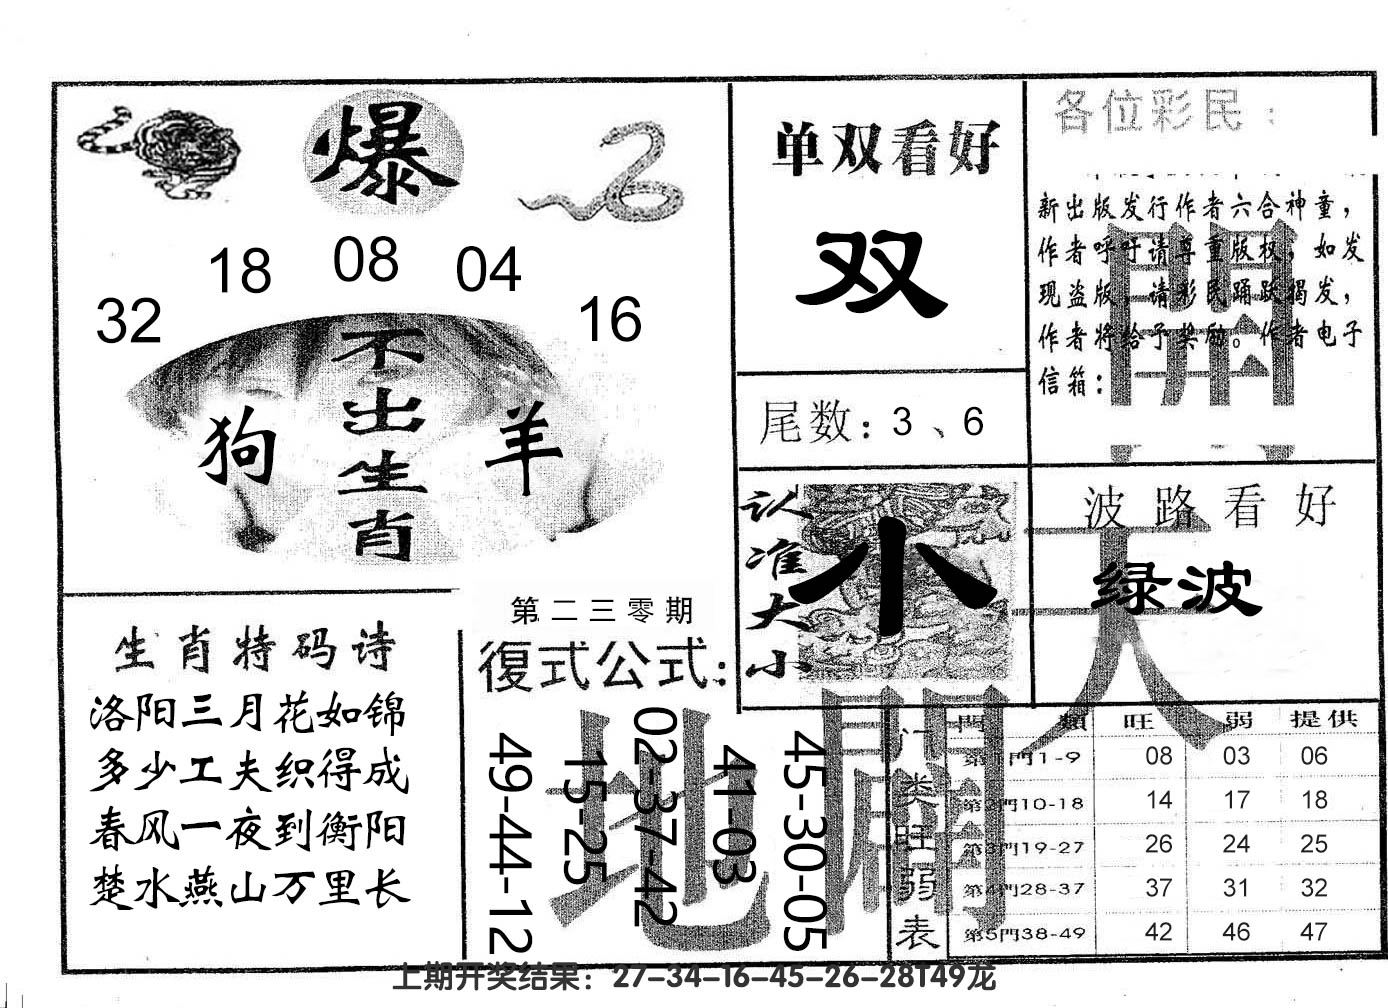 爆
18 08 04
32 16
不出生肖
狗 羊
生肖特码诗
洛阳三月花如锦
多少工夫织得成
春风一夜到衡阳
楚水燕山万里长
第二三零期
復式公式:
49-44-12
15-25
02-37-42
41-03
45-30-05
单双看好
双
尾数: 3 、6
认准大小
小
各位彩民:
新出版发行作者六合神童，
作者呼吁请尊重版权，如发
现盗版，请彩民踊跃揭发，
作者将给予奖励。作者电子
信箱:
波路看好
绿波
開
天
地
闢
门类旺弱表
門類 旺 弱 提供
第1門1-9 08 03 06
第2門10-18 14 17 18
第3門19-27 26 24 25
第4門28-37 37 31 32
第5門38-49 42 46 47
上期开奖结果：27-34-16-45-26-28T49龙